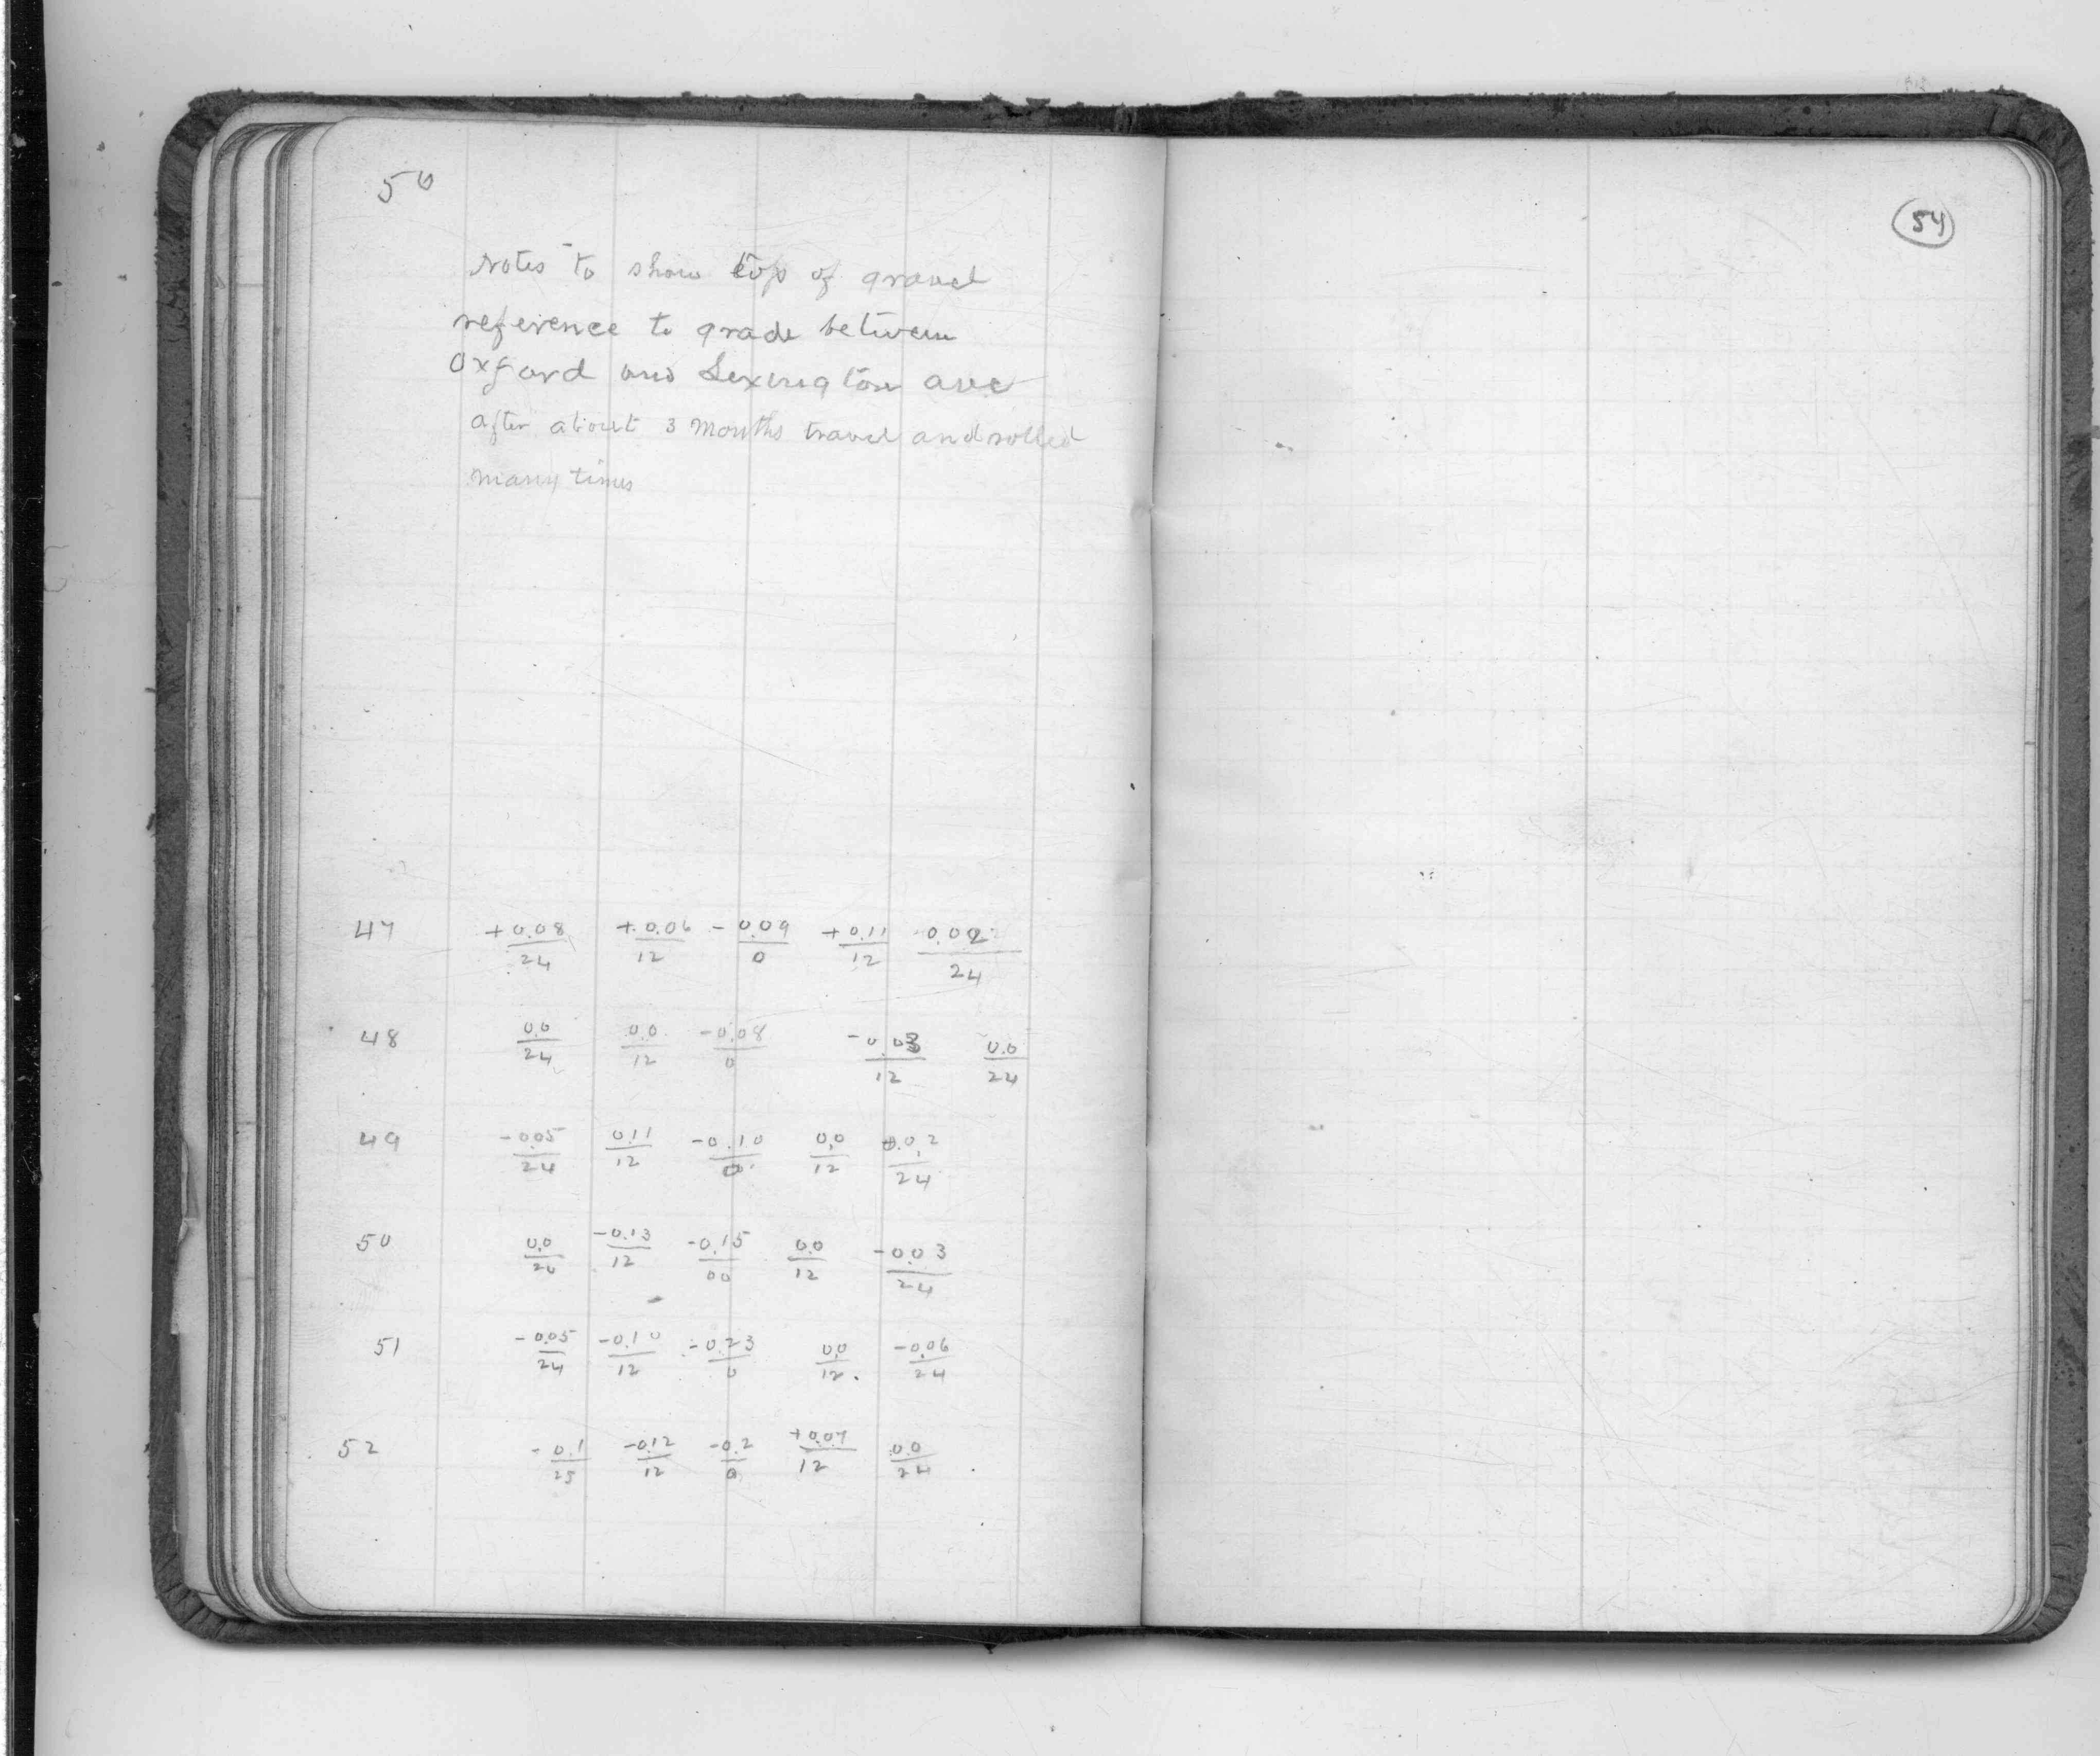 50
54
Notes to show top of gravel
reference to grade between
Oxford and Lexington ave
after about 3 months travel and rolled
many times
47 +0.08/24 +0.06/12 -0.09/0 +0.11/12 0.002/24
48 0.0/24 0.0/12 -0.08/0 -0.03/12 0.0/24
49 -0.05/24 0.11/12 -0.10/0 0.0/12 0.02/24
50 0.0/24 -0.13/12 -0.15/00 0.0/12 -0.03/24
51 -0.05/24 -0.10/12 -0.23/0 0.0/12 -0.06/24
52 -0.1/25 -0.12/12 -0.2/0 +0.07/12 0.0/24